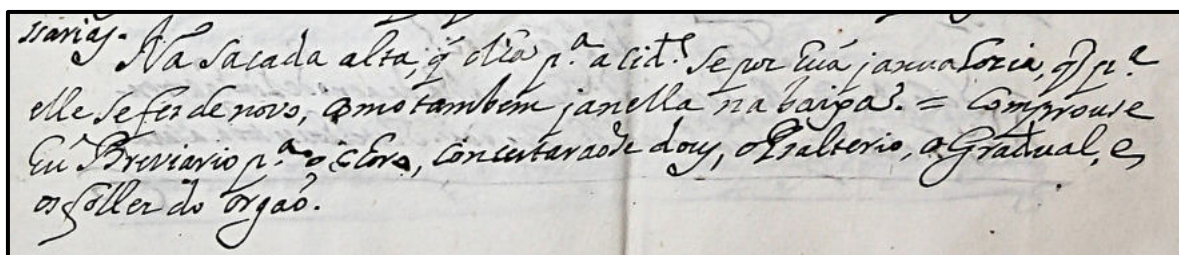 ssarias.
Na sacada alta, q̃ olha p.ª a cid.e se por huã janua loria, q̃ p.ª
elle se fes de novo, como tambem janella na baixa. = comprouse
hũ Breviario p.ª o choro, concertaraõse dous, o Psalterio, o Gradual, e
os folles do orgaõ.